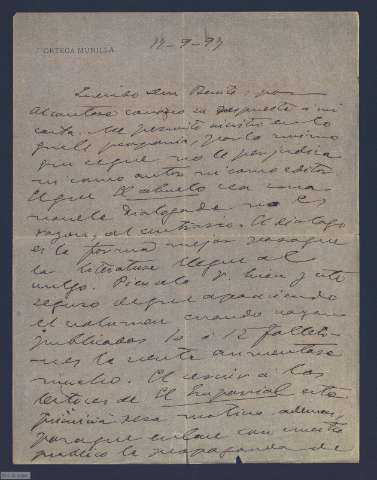 J. ORTEGA MUNILLA
11-9-97
Querido Don Benito: por
Alcántara conozco su respuesta a mi
carta. Me permito insistir en lo
que le proponía, por lo mismo
que creo que no le perjudica
ni como autor ni como editor
El que El abuelo sea una
novela dialogada no es
razon, al contrario. El dialogo
es la forma mejor para que
la literatura llegue al
vulgo. Pienselo V. bien y esté
seguro de que apareciendo
el volumen cuando vayan
publicados 10 o 12 folleto-
nes la venta aumentará
mucho. El a las
lectores de El Imparcial esta
primicia sera motivo ademas,
para que enlace con nuestro
publico la propaganda de